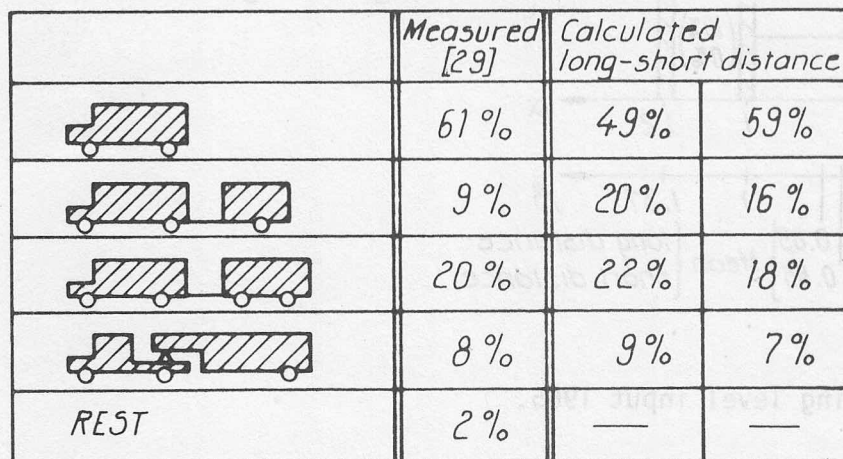 Measured Calculated
[29] long-short distance
61% 49% 59%
9% 20% 16%
20% 22% 18%
8% 9% 7%
REST 2% — —